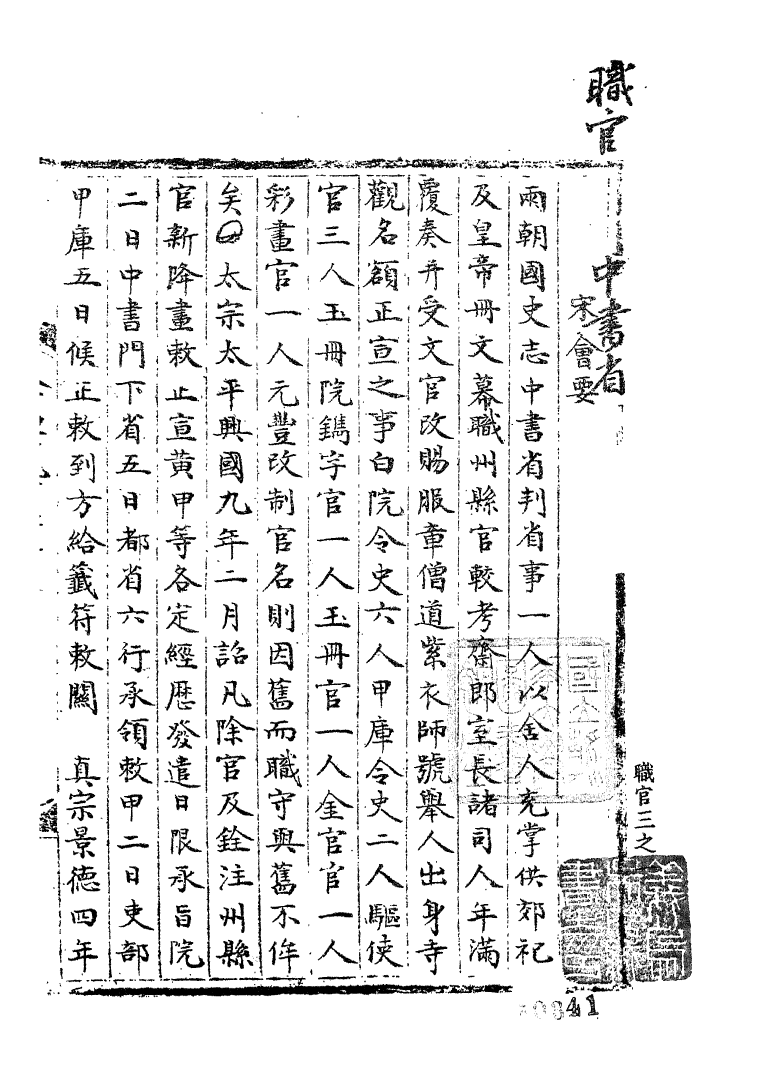 職官
中書省
宋會要
兩朝國史志中書省判省事一人以舍人充掌供郊祀
及皇帝冊文幕職州縣官較考齋郎室長諸司人年滿
覆奏并受文官改賜服章僧道紫衣師號舉人出身寺
觀名額正宣之事白院令史六人甲庫令史二人驅使
官三人玉冊院鐫字官一人玉冊官一人金官官一人
彩畫官一人元豐改制官名則因舊而職守與舊不侔
矣○太宗太平興國九年二月詔凡除官及銓注州縣
官新降畫敕止宣黃甲等各定經歷發遣日限承旨院
二日中書門下省五日都省六行承領敕甲二日吏部
甲庫五日候正敕到方給籤符敕關 真宗景德四年
職官三之一
41